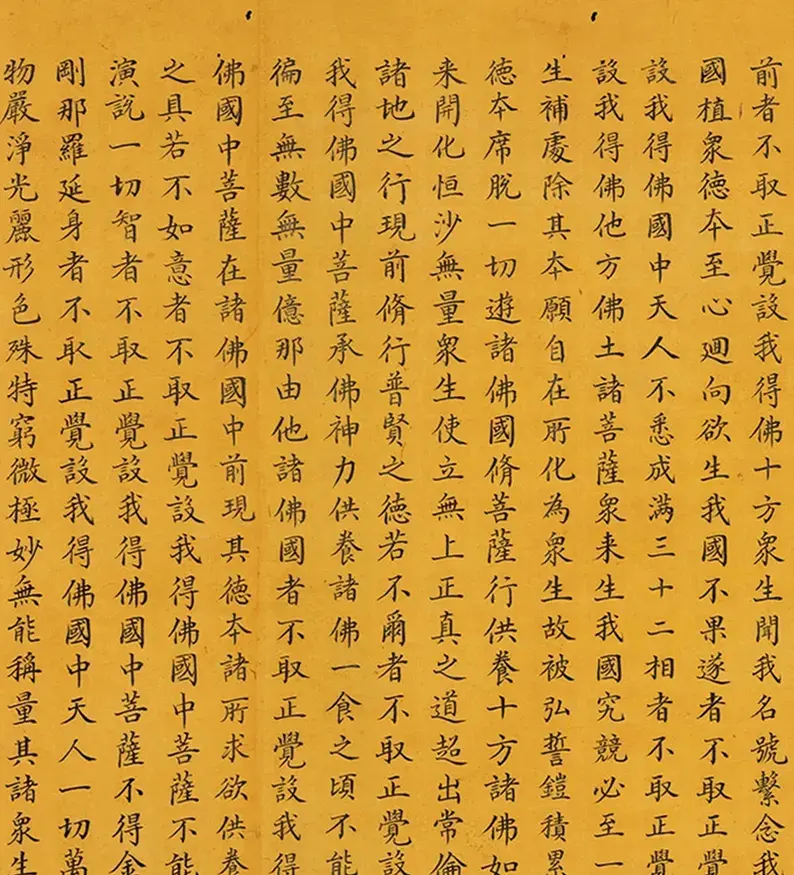 前者不取正覺設我得佛十方衆生聞我名號繫念我
國植衆德夲至心迴向欲生我國不果遂者不取正覺
設我得佛國中天人不悉成滿三十二相者不取正覺
設我得佛他方佛土諸菩薩衆来生我國究競必至一
生補處除其夲願自在所化為衆生故被弘誓鎧積累
德夲席脫一切遊諸佛國脩菩薩行供養十方諸佛如
来開化恒沙無量衆生使立無上正真之道超出常倫
諸地之行現前脩行普賢之德若不爾者不取正覺設
我得佛國中菩薩承佛神力供養諸佛一食之頃不能
徧至無數無量億那由他諸佛國者不取正覺設我得
佛國中菩薩在諸佛國中前現其德夲諸所求欲供養
之具若不如意者不取正覺設我得佛國中菩薩不能
演說一切智者不取正覺設我得佛國中菩薩不得金
剛那羅延身者不取正覺設我得佛國中天人一切萬
物嚴淨光麗形色殊特窮微極妙無能稱量其諸衆生